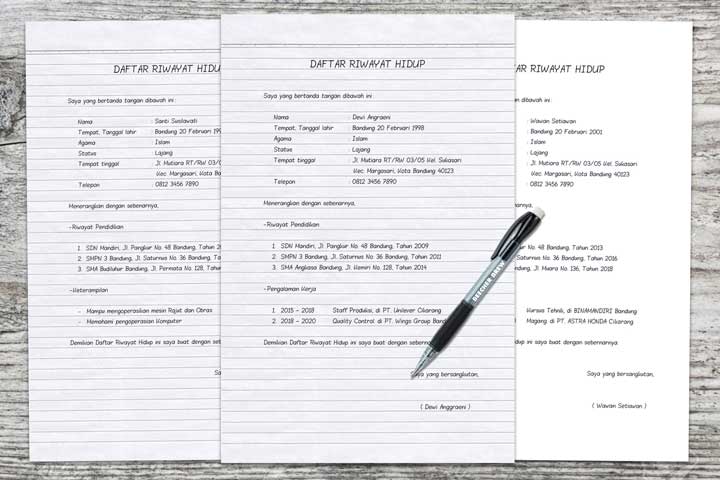 DAFTAR RIWAYAT HIDU
Saya yang bertanda tangan dibawah ini :
Nama : Santi Susilavati
Tempat, Tanggal lahir : Bandung 20 Februari 199
Agama : Islam
Status : Lajang
Tempat tinggal : Jl. Mutiara RT/RW 03/0
Kec. Margasari, Kota B
Telepon : 0812 3456 7890
Menerangkan dengan sebenarnya,
-Riwayat Pendidikan
1. SDN Mandiri, Jl. Pangkur No. 48 Bandung, Tahun 2
2. SMPN 3 Bandung, Jl. Saturnus No. 36 Bandung, Ta
3. SMA Budiluhur Bandung, Jl. Permata No. 128, Tahun
-Keterampilan
- Mampu mengoperasikan mesin Rajut dan Obras
- Memahami pengoperasian Komputer
Demikian Daftar Riwayat Hidup ini saya buat dengan se
Sa
DAFTAR RIWAYAT HIDUP
Saya yang bertanda tangan dibawah ini :
Nama : Dewi Angraeni
Tempat, Tanggal lahir : Bandung 20 Februari 1998
Agama : Islam
Status : Lajang
Tempat tinggal : Jl. Mutiara RT/RW 03/05 Kel. Sukasari
Kec. Margasari, Kota Bandung 40123
Telepon : 0812 3456 7890
Menerangkan dengan sebenarnya,
-Riwayat Pendidikan
1. SDN Mandiri, Jl. Pangkur No. 48 Bandung, Tahun 2009
2. SMPN 3 Bandung, Jl. Saturnus No. 36 Bandung, Tahun 2011
3. SMA Angkasa Bandung, Jl. Kemiri No. 128, Tahun 2014
-Pengalaman Kerja
1. 2015 - 2018 Staff Produksi, di PT. Unilever Cikarang
2. 2018 - 2020 Quality Control: di PT. Wings Group Band
Demikian Daftar Riwayat Hidup ini saya buat dengan sebenarn
Saya yang bersangkutan,
( Dewi Anggraeni )
BEECHER BREW
AR RIWAYAT HIDUP
an dibawah ini :
: Wawan Setiawan
: Bandung 20 Februari 2001
: Islam
: Lajang
: Jl. Mutiara RT/RW 03/05 Kel. Sukasari
Kec. Margasari, Kota Bandung 40123
: 0812 3456 7890
ya,
No. 48 Bandung, Tahun 2013
Saturnus No. 36 Bandung, Tahun 2016
g, Jl. Muara No. 136, Tahun 2018
Kursus Teknik, di BINAMANDIRI Bandung
Magang di PT. ASTRA HONDA Cikarang
dup ini saya buat dengan sebenarnya.
Saya yang bersangkutan,
( Wawan Setiawan )